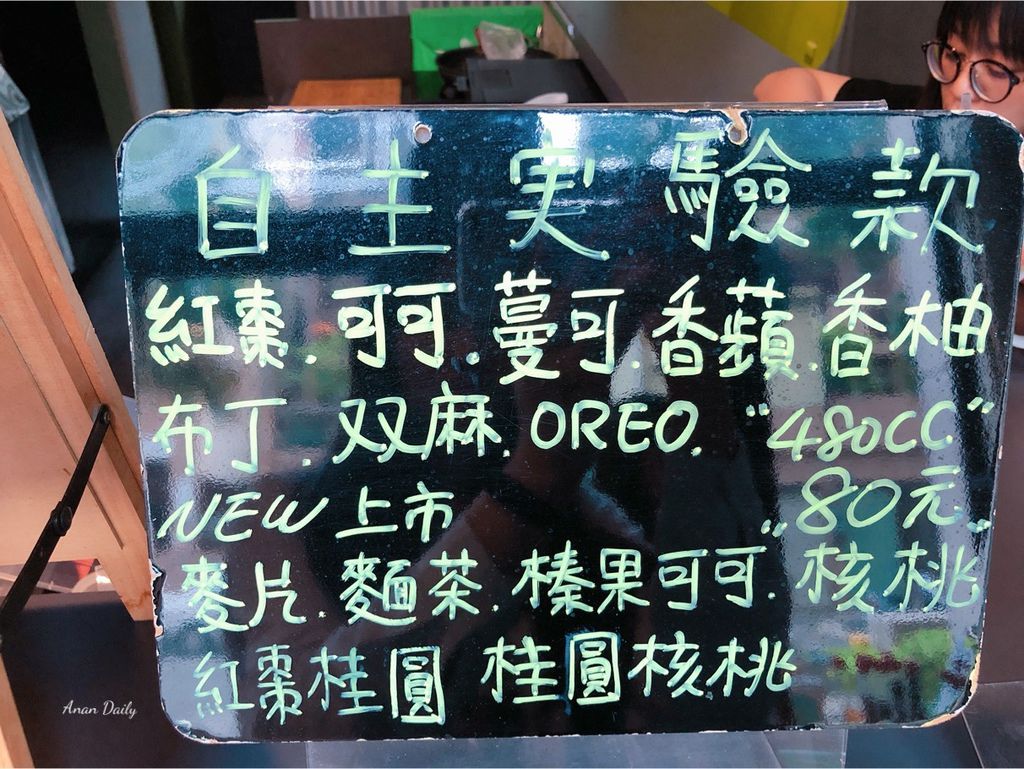 自主実驗款
紅棗.可可.蔓可.香蘋.香柚
布丁.双麻.OREO. "480CC"
NEW 上市 "80元"
麥片.麵茶.榛果可可.核桃
紅棗桂圓 桂圓核桃
Anan Daily